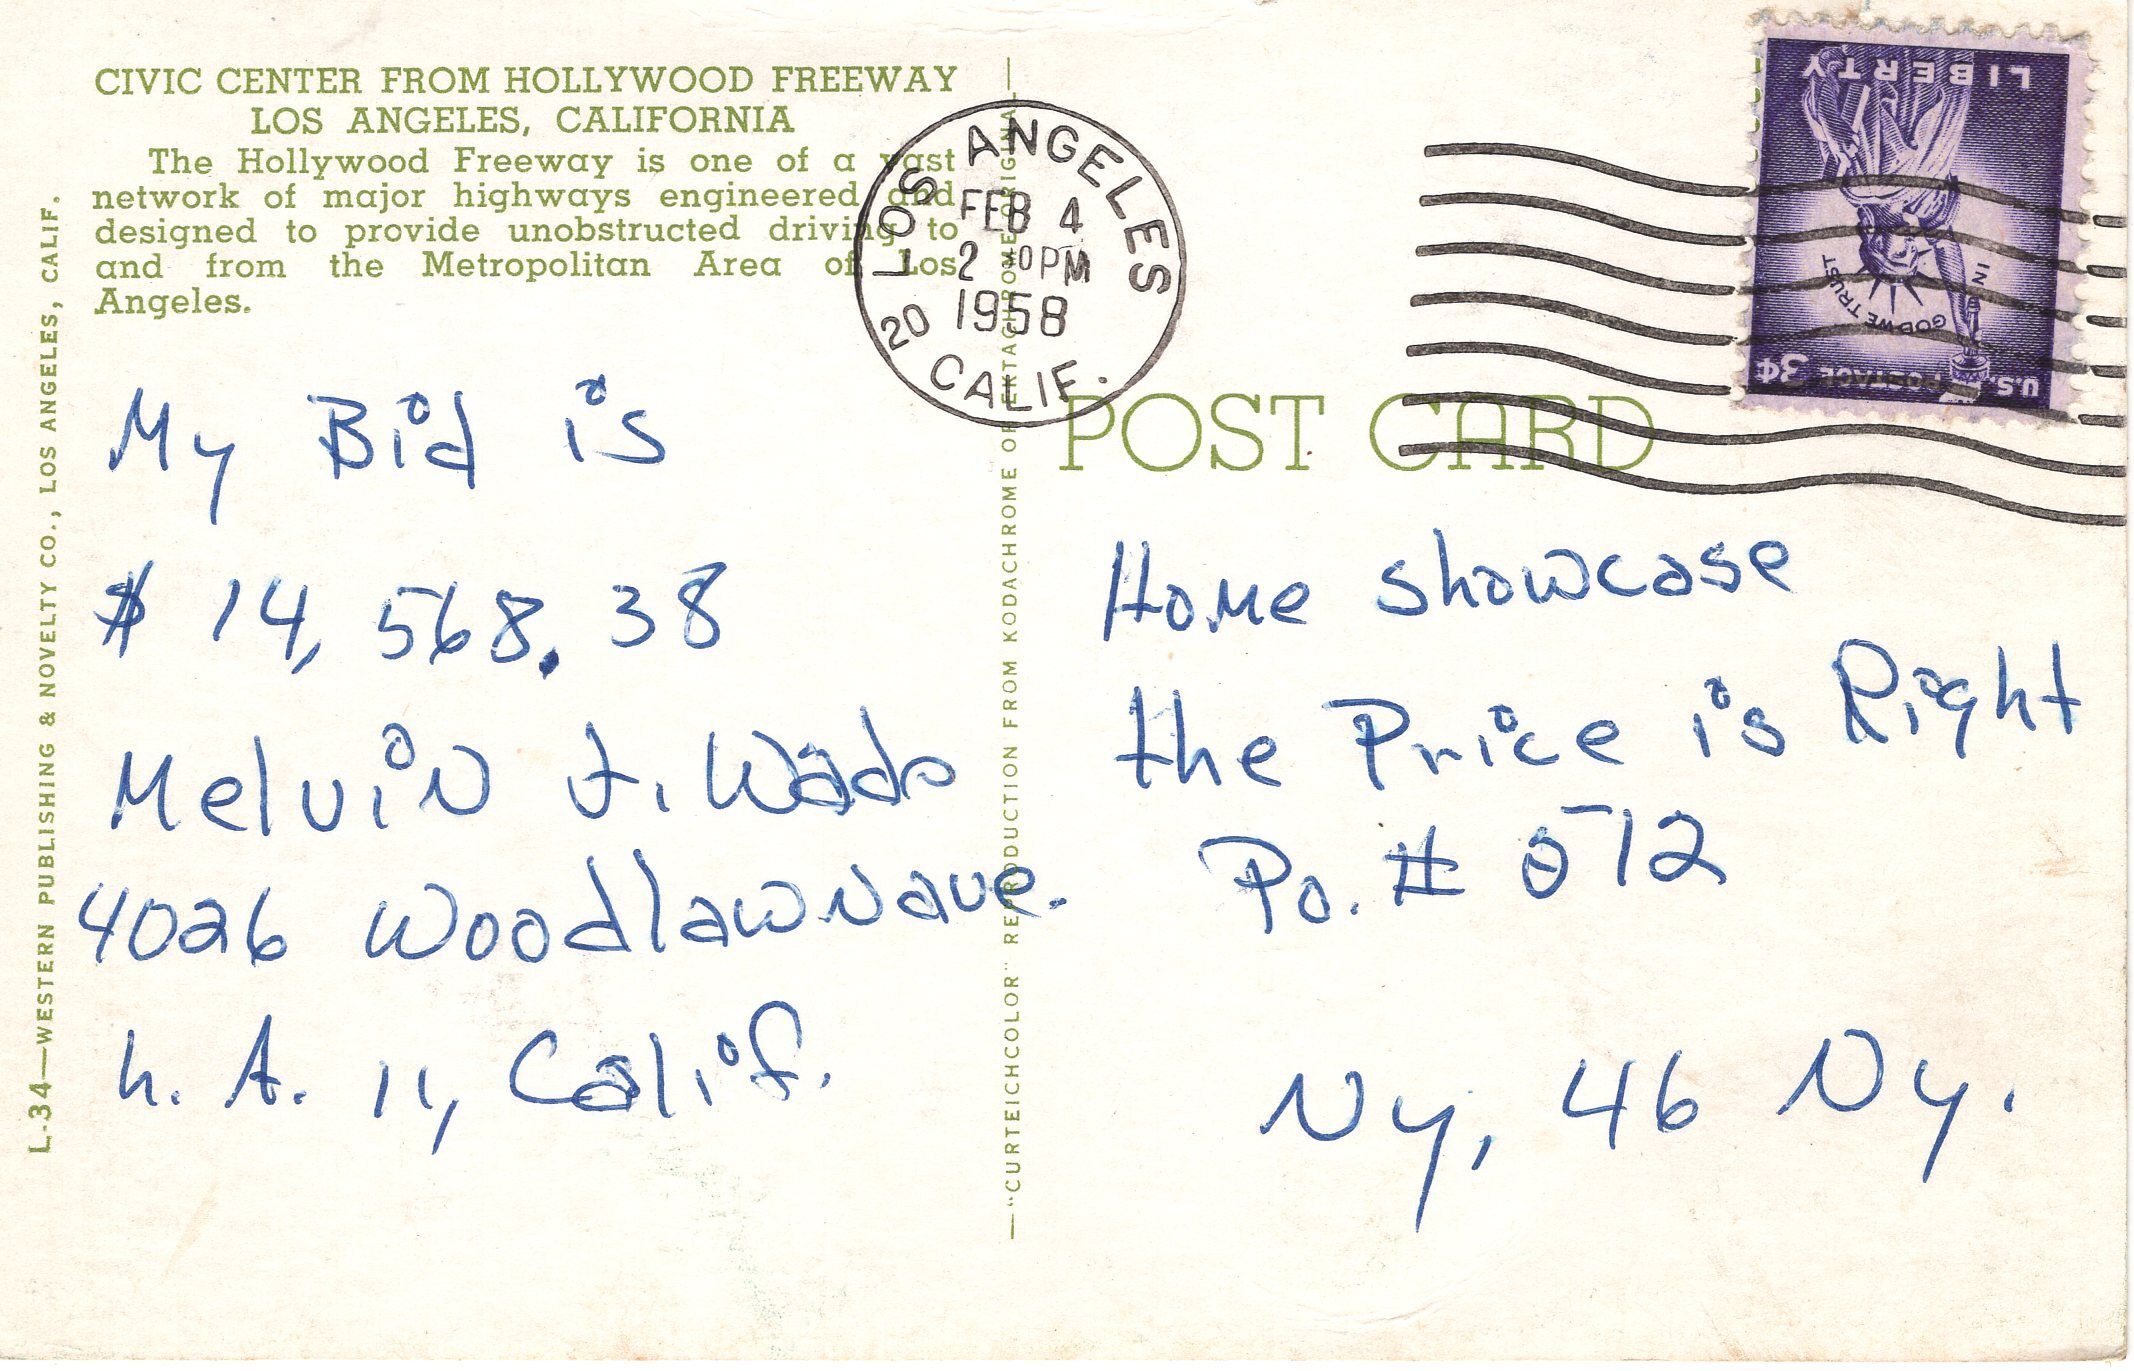 CIVIC CENTER FROM HOLLYWOOD FREEWAY
LOS ANGELES, CALIFORNIA
The Hollywood Freeway is one of a vast
network of major highways engineered and
designed to provide unobstructed driving to
and from the Metropolitan Area of Los
Angeles.
L-34—WESTERN PUBLISHING & NOVELTY CO., LOS ANGELES, CALIF.
My Bid is
$ 14,568.38
Melvin J. Wado
4026 Woodlawn ave.
L. A. 11, Calif.
—"CURTEICHCOLOR" REPRODUCTION FROM KODACHROME OR EKTACHROME ORIGINAL—
LOS ANGELES
FEB 4
2 PM
1958
20 CALIF.
LIBERTY
IN GOD WE TRUST
U.S. POSTAGE 3¢
POST CARD
Home showcase
the Price is Right
Po. # 572
Ny, 46 Ny.